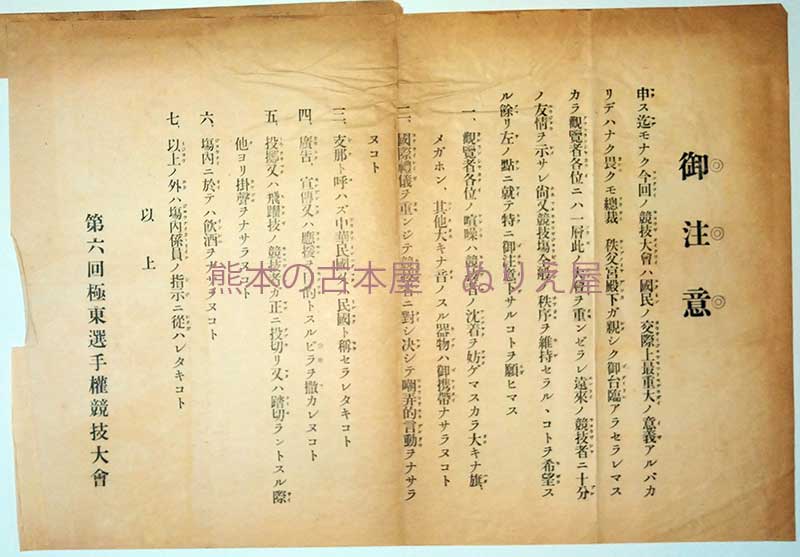 御注意
申ス迄モナク今回ノ競技大會ハ國民ノ交際上最重大ノ意義アルバカ
リデハナク畏クモ總裁 秩父宮殿下ガ親シク御台臨アラセラレマス
カラ觀覽者各位ニハ一層此ノ大會ヲ重ンゼラレ遠來ノ競技者ニ十分
ノ友情ヲ示サレ尙又競技場全般ノ秩序ヲ維持セラルヽコトヲ希望ス
ル餘リ左ノ點ニ就テ特ニ御注意下サルコトヲ願ヒマス
一、觀覽者各位ノ喧噪ハ競技者ノ沈着ヲ妨ゲマスカラ大キナ旗、
メガホン、其他大キナ音ノスル器物ハ御携帶ナサラヌコト
二、國際禮儀ヲ重ンジテ競技者ニ對シ決シテ嘲弄的言動ヲナサラ
ヌコト
三、支那ト呼ハズ中華民國又ハ民國ト稱セラレタキコト
四、廣告、宣傳又ハ應援ヲ目的トスルビラヲ撒カレヌコト
五、投擲又ハ飛躍技ノ競技者ガ正ニ投切リ又ハ踏切ラントスル際
他ヨリ掛聲ヲナサラヌコト
六、場内ニ於テハ飮酒ヲナサラヌコト
七、以上ノ外ハ場内係員ノ指示ニ從ハレタキコト
以上
第六回極東選手權競技大會
熊本の古本屋 ぬりえ屋